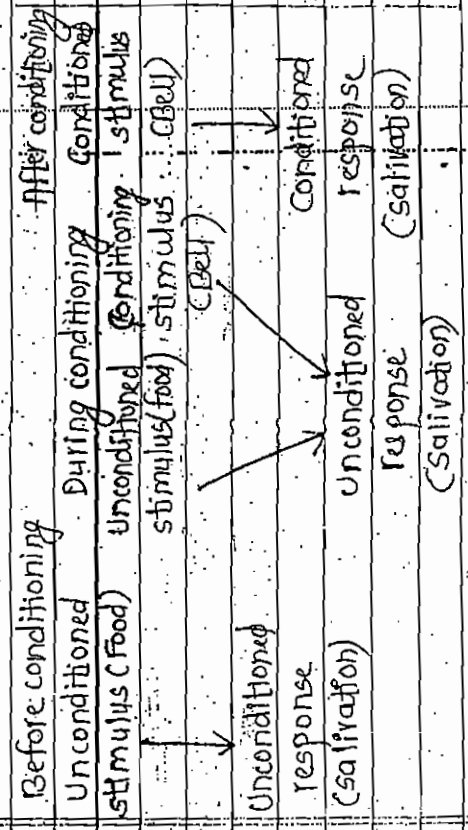 Before conditioning
Unconditioned
stimulus (Food)
Unconditioned
response
(salivation)
During conditioning
Unconditioned
stimulus (food)
Conditioning
stimulus
(Bell)
Unconditioned
response
(salivation)
After conditioning
Conditioned
stimulus
(Bell)
Conditioned
response
(salivation)